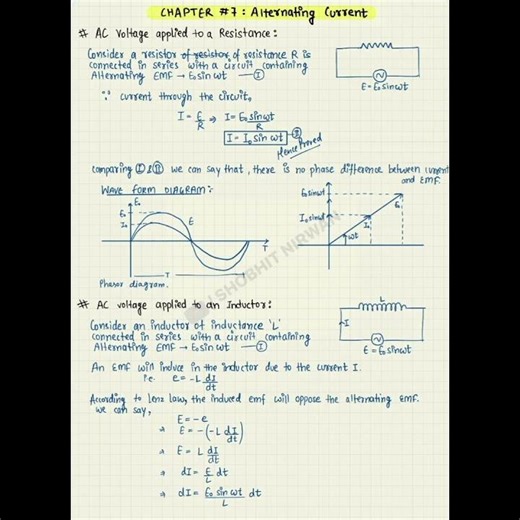 CHAPTER #7: Alternating Current
# AC Voltage applied to a Resistance:
Consider a resistor of resistor of resistance R is
connected in series with a circuit containing
Alternating EMF → E₀ sin wt —(I)
E = E₀ sin wt
∵ current through the circuit,
I = E/R ⇒ I = E₀ sin wt/R
I = I₀ sin wt —(II)
Hence Proved
comparing (I) & (II) we can say that, there is no phase difference between current
and EMF.
WAVE FORM DIAGRAM:-
E₀
E₀
I₀
E
T
T
E₀ sin wt
I₀ sin wt
E₀
I₀
wt
Phasor diagram.
SHOBHIT NIRWAN
# AC voltage applied to an Inductor:
L
I
E = E₀ sin wt
Consider an inductor of inductance 'L'
connected in series with a circuit containing
Alternating EMF → E₀ sin wt —(I)
An EMF will induce in the inductor due to the current I.
i.e. e = -L dI/dt
According to lenz law, the induced emf will oppose the alternating EMF.
we can say,
E = -e
⇒ E = -(-L dI/dt)
⇒ E = L dI/dt
⇒ dI = E/L dt
⇒ dI = E₀ sin wt/L dt